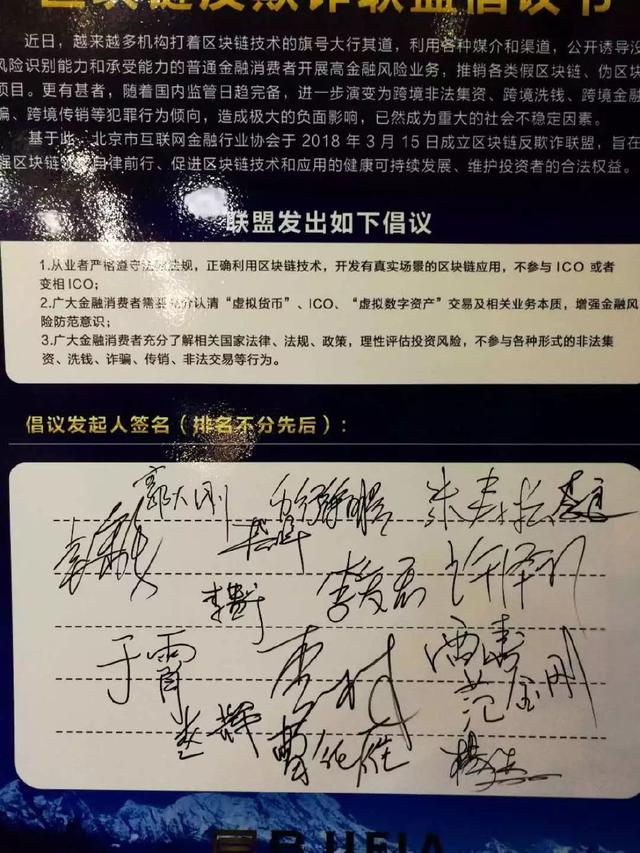 区块链反欺诈联盟倡议书
近日，越来越多机构打着区块链技术的旗号大行其道，利用各种媒介和渠道，公开诱导没
风险识别能力和承受能力的普通金融消费者开展高金融风险业务，推销各类假区块链、伪区块
项目。更有甚者，随着国内监管日趋完备，进一步演变为跨境非法集资、跨境洗钱、跨境金融
骗、跨境传销等犯罪行为倾向，造成极大的负面影响，已然成为重大的社会不稳定因素。
基于此，北京市互联网金融行业协会于 2018 年 3 月 15 日成立区块链反欺诈联盟，旨在
强区块链 自律前行、促进区块链技术和应用的健康可持续发展、维护投资者的合法权益。
联盟发出如下倡议
1.从业者严格遵守法律法规，正确利用区块链技术，开发有真实场景的区块链应用，不参与 ICO 或者
变相 ICO；
2.广大金融消费者需要充分认清“虚拟货币”、ICO、“虚拟数字资产”交易及相关业务本质，增强金融风
险防范意识；
3.广大金融消费者充分了解相关国家法律、法规、政策，理性评估投资风险，不参与各种形式的非法集
资、洗钱、诈骗、传销、非法交易等行为。
倡议发起人签名（排名不分先后）：
郭大刚
许泽玮
于霄
范金刚
BJIFIA